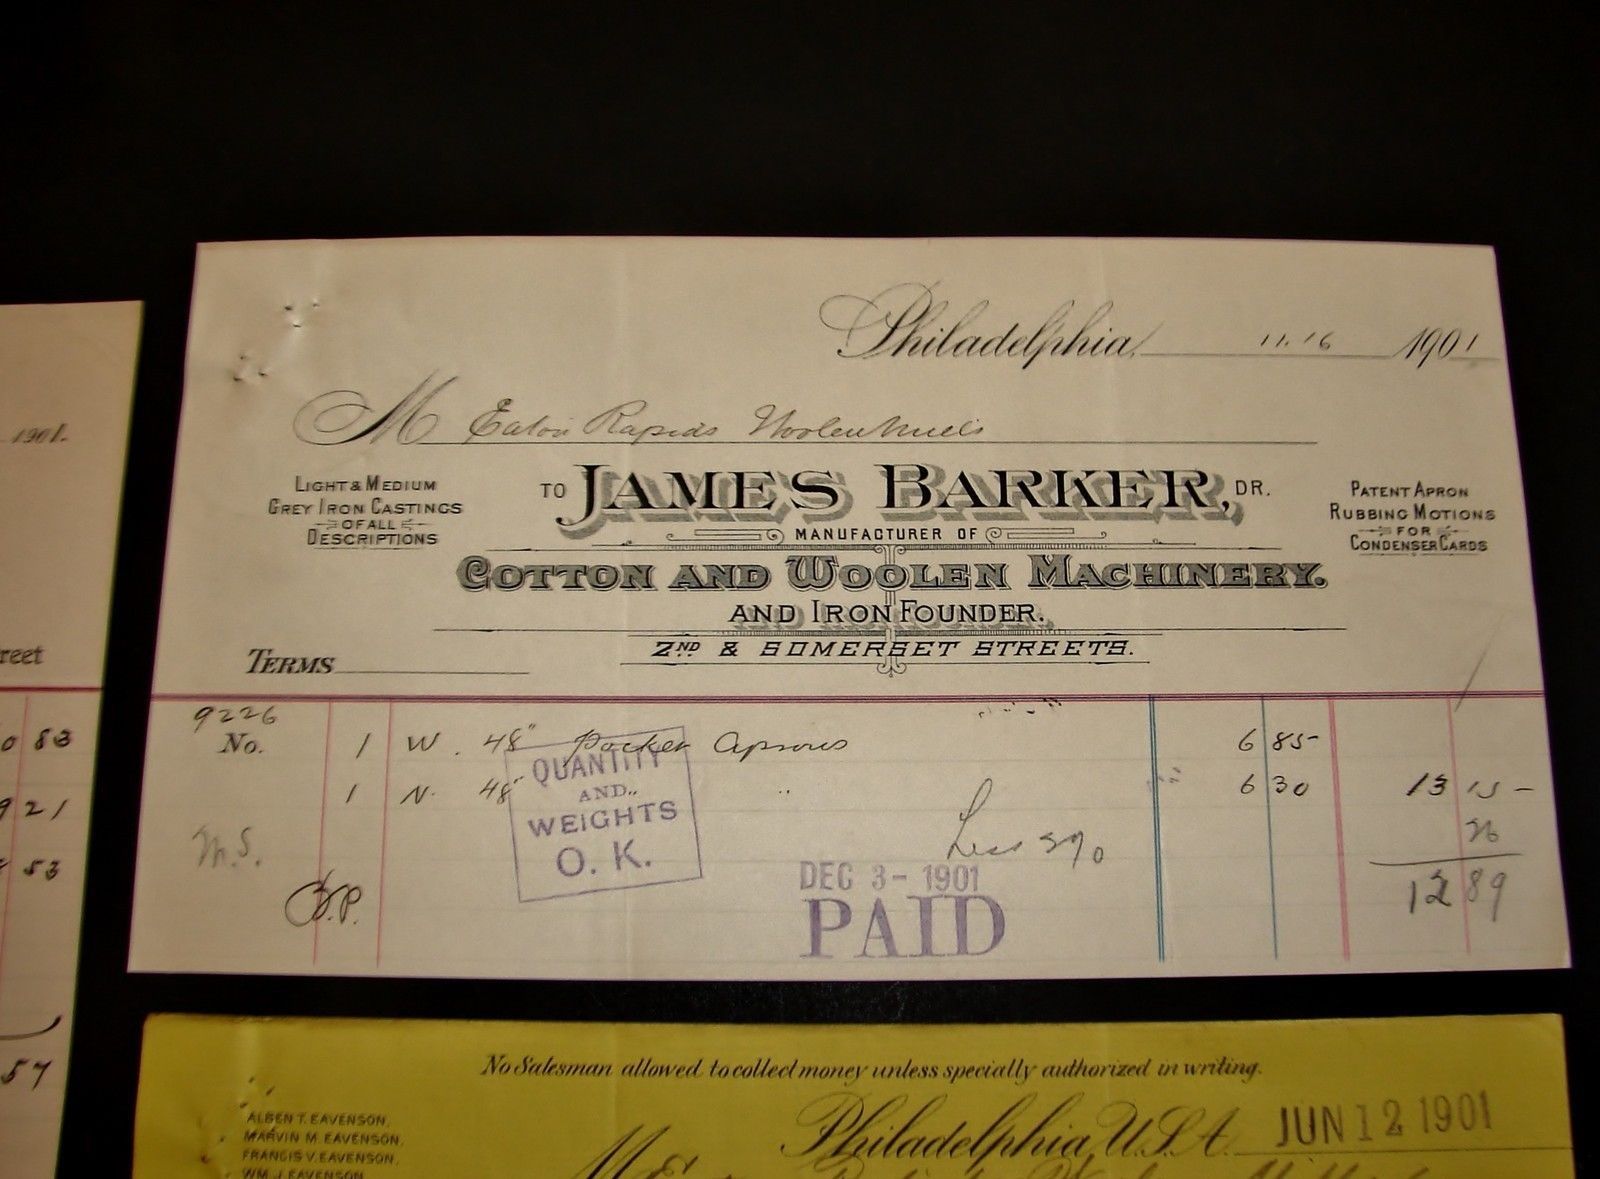 1901.
reet
0 83
9 21
53
57
Philadelphia, 11.16 1901
M Eaton Rapids Woolen Mills
LIGHT & MEDIUM
GREY IRON CASTINGS
OF ALL
DESCRIPTIONS
TO JAMES BARKER, DR.
MANUFACTURER OF
COTTON AND WOOLEN MACHINERY.
AND IRON FOUNDER.
2ND & SOMERSET STREETS.
PATENT APRON
RUBBING MOTIONS
FOR
CONDENSER CARDS
TERMS
9226
No. 1 W. 48" Pocket Aprons 6 85
1 N. 48" " 6 30 13 15
Less 2% 26
12 89
M.S.
QUANTITY
AND
WEIGHTS
O. K.
DEC 3 - 1901
PAID
No Salesman allowed to collect money unless specially authorized in writing.
Philadelphia, U.S.A. JUN 12 1901
ALBEN T. EAVENSON,
MARVIN M. EAVENSON,
FRANCIS V. EAVENSON,
WM. J. EAVENSON